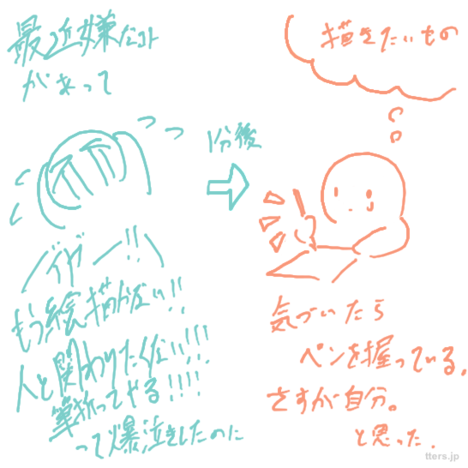 最近嫌なコト
があって
イヤー!!
もう絵描かない!!
人と関わりたくない!!!
筆折ってやる!!!!
って爆泣きしたのに
1分後
描きたいもの
気づいたら
ペンを握っている。
さすが自分。
と思った.
tters.jp